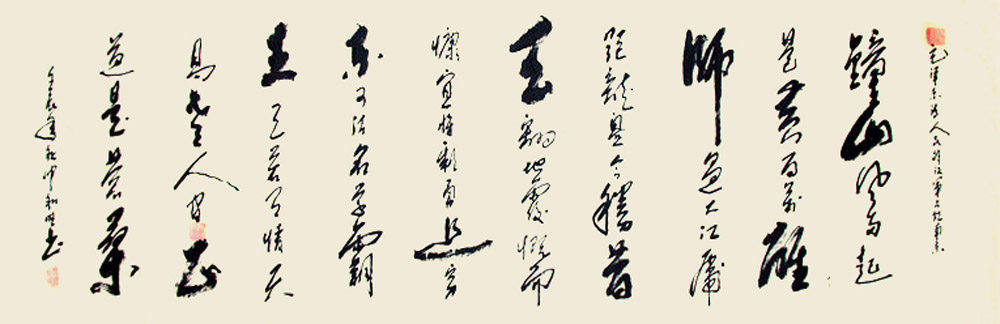 毛泽东人民解放军占领南京
鐘山风雨起
黄百万雄
师过大江虎
踞龙盘今胜昔
天翻地覆慨而
慷宜将剩勇追穷
不可沽名学霸
王天若有情天
老人间正
道是苍桑
壬辰年秋书